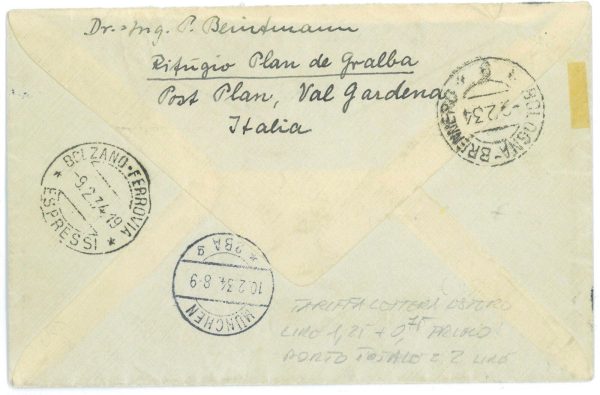 Dr.-Ing. P. Beintmann
Rifugio Plan de Gralba
Post Plan, Val Gardena
Italia
BOLOGNA-BRENNERO
9.2.34
BOLZANO-FERROVIA
9.2.34.19
* ESPRESSI *
* 2BA g
10.2.34. 8-9
MÜNCHEN
TARIFFA LETTERA ESTERO
LIRE 1,25 + 0,75
PORTO TOTALE £ 2 LIRE